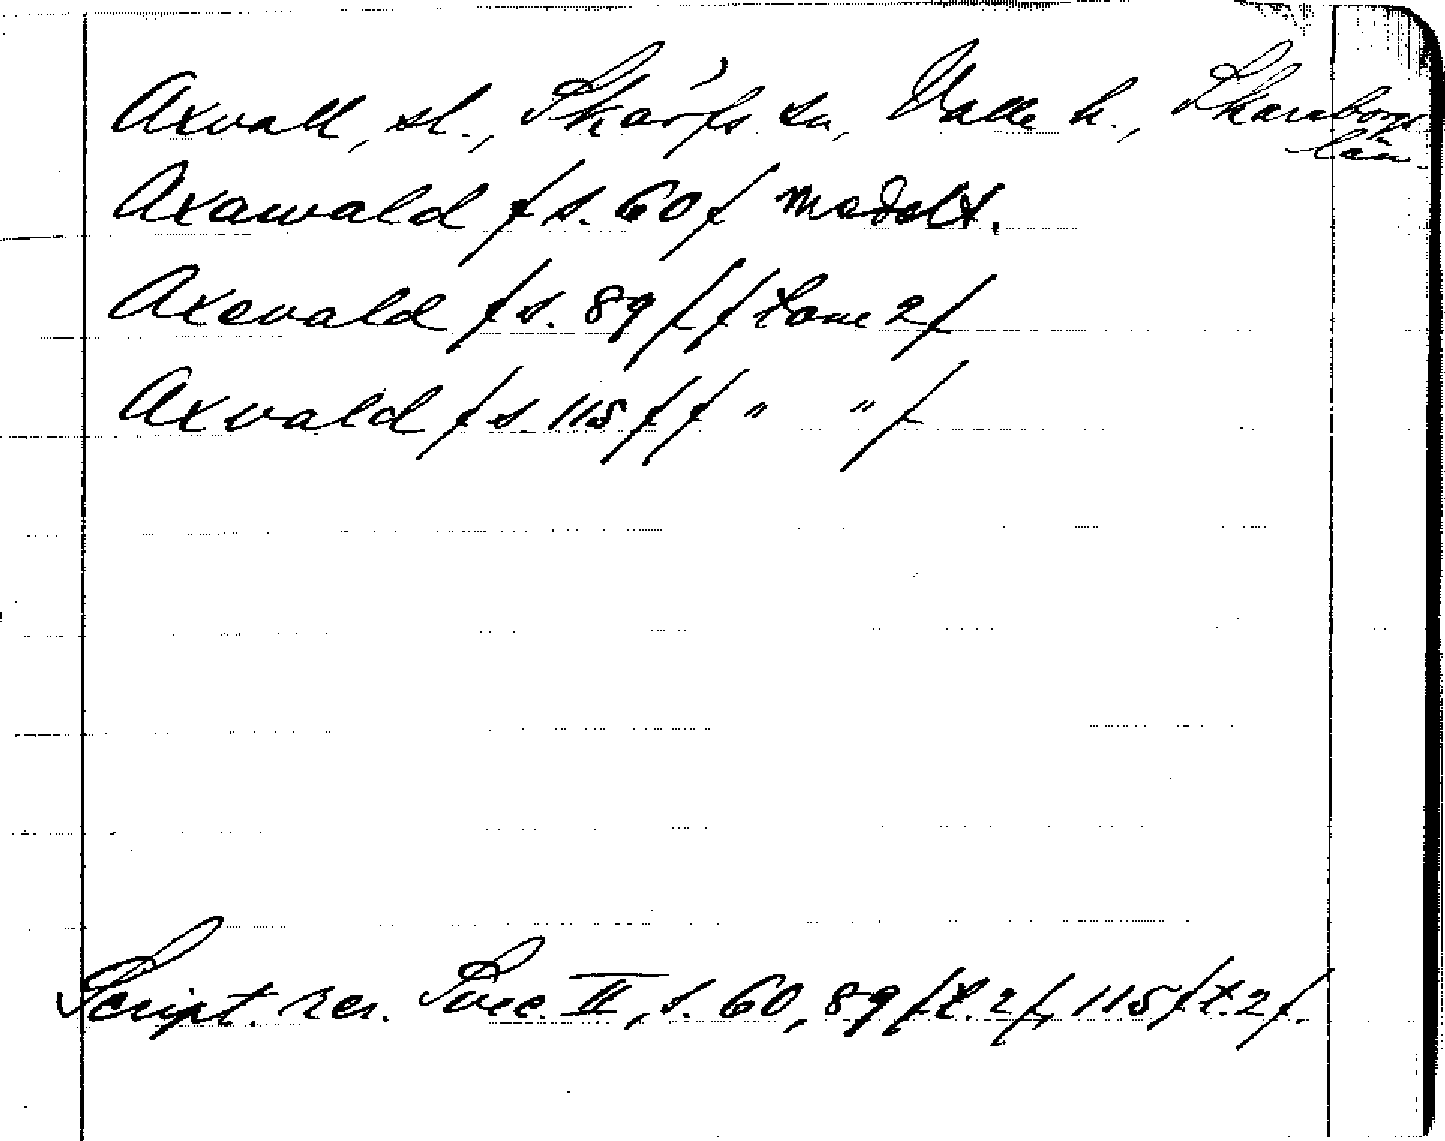 Axvall, sl., Skärfs sn, Valle h., Skaraborgs
län.
Axawald / s. 60 / medelt.
Axevald / s. 89 / / tome 2 /
Axvald / s. 115 / / " " /
Script. rer. Svec. II, s. 60, 89 / t. 2 /, 115 / t. 2 /.